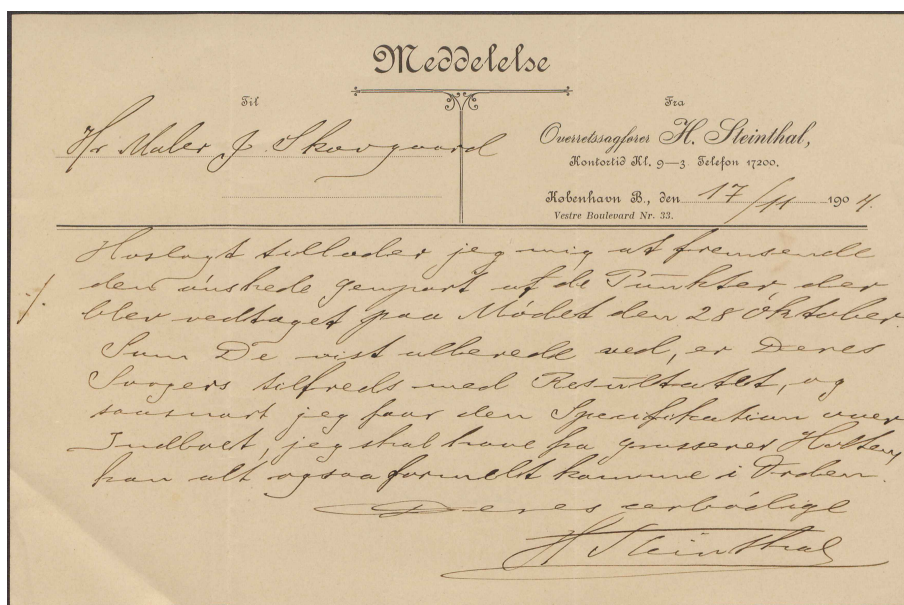 Meddelelse
Til
Hr Maler J. Skovgaard
Fra
Overretssagfører H. Steinthal,
Kontortid Kl. 9—3. Telefon 17200.
København B., den 17/11 1904.
Vestre Boulevard Nr. 33.
Hoslagt tillader jeg mig at fremsende
./. den ønskede Genpart af de Punkter der
blev vedtaget paa Mødet den 28 Oktober.
Som De vist allerede ved, er Deres
Svogers tilfreds med Resultatet, og
saasnart jeg faar den Specifikation over
Indboet, jeg skal have fra
kan alt ogsaa formelt komme i Orden.
Deres ærbødige
H Steinthal